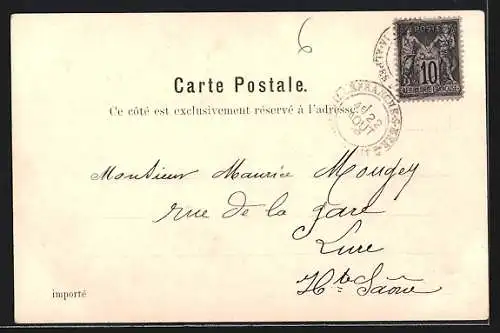 6
POSTES
10
Carte Postale.
Ce côté est exclusivement réservé à l'adresse.
2
AOUT
Monsieur Maurice Mougey
rue de la gare
Lure
Hte Saône
importé